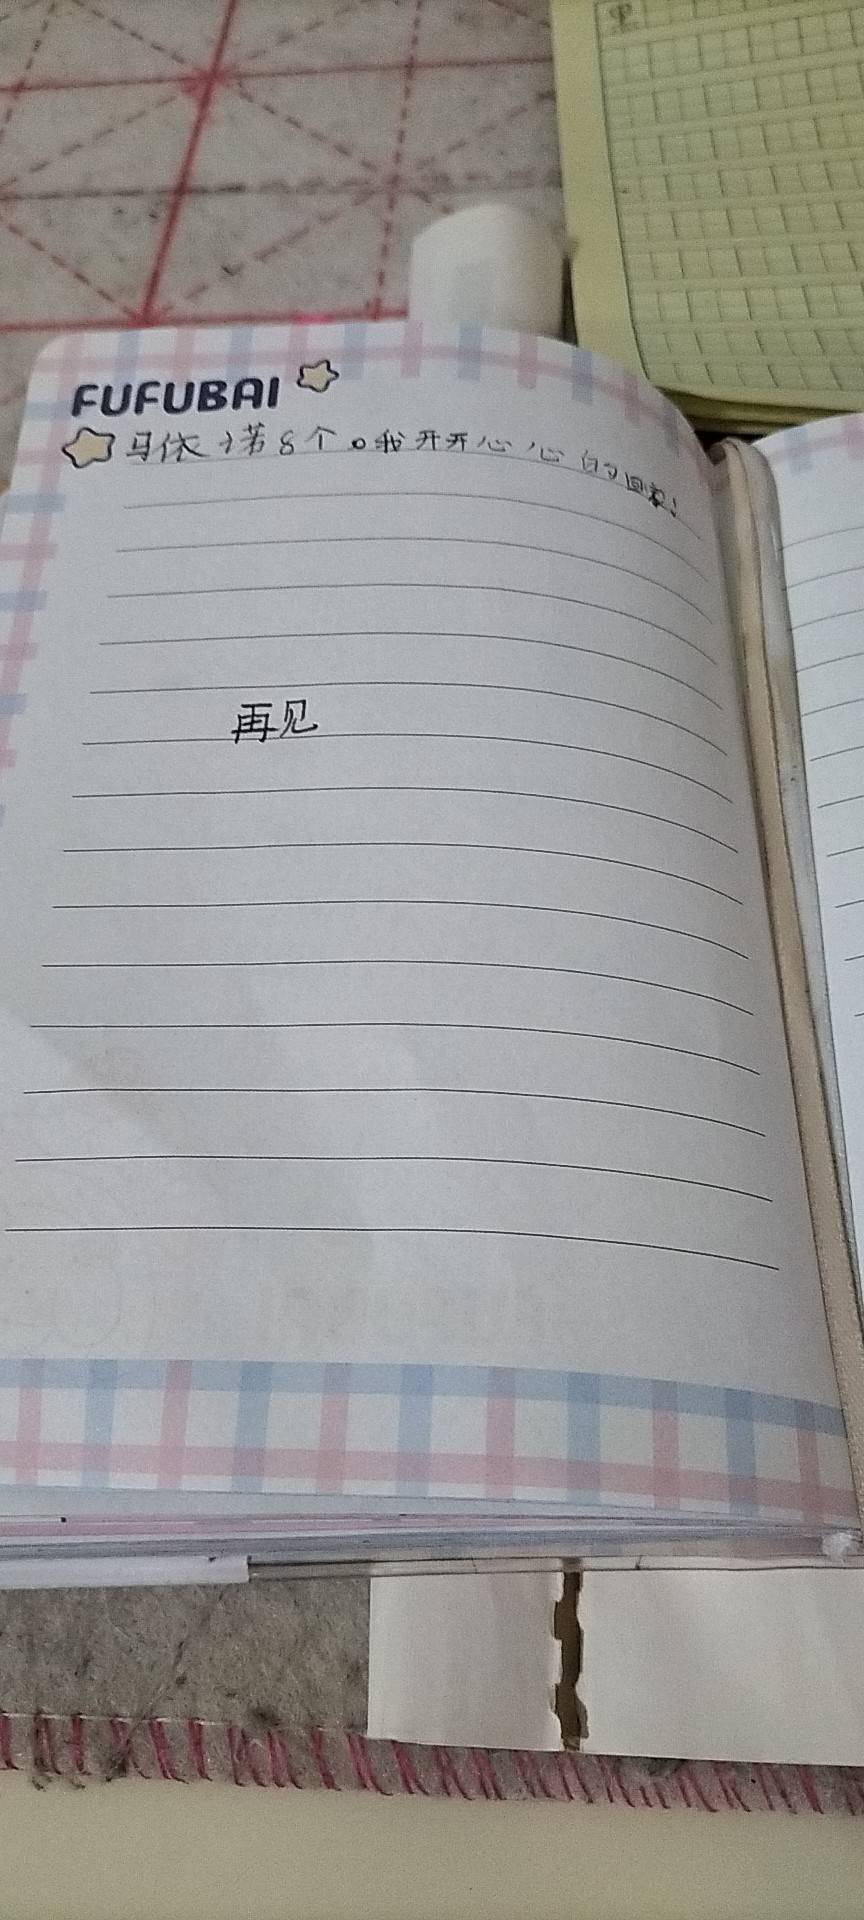 FUFUBAI
马依诺8个。我开开心心的回家!
再见